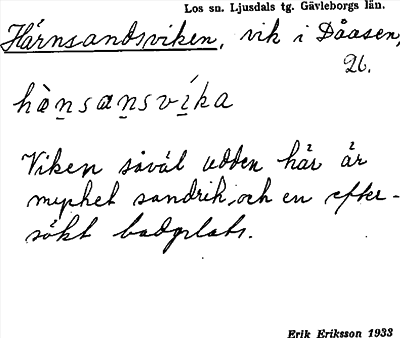 Los sn. Ljusdals tg. Gävleborgs län.
Härnsandsviken, vik i Dåasen,
26.
hànsansvíka
Viken såväl udden här är
mycket sandrik, och en efter-
sökt badplats.
Erik Eriksson 1933